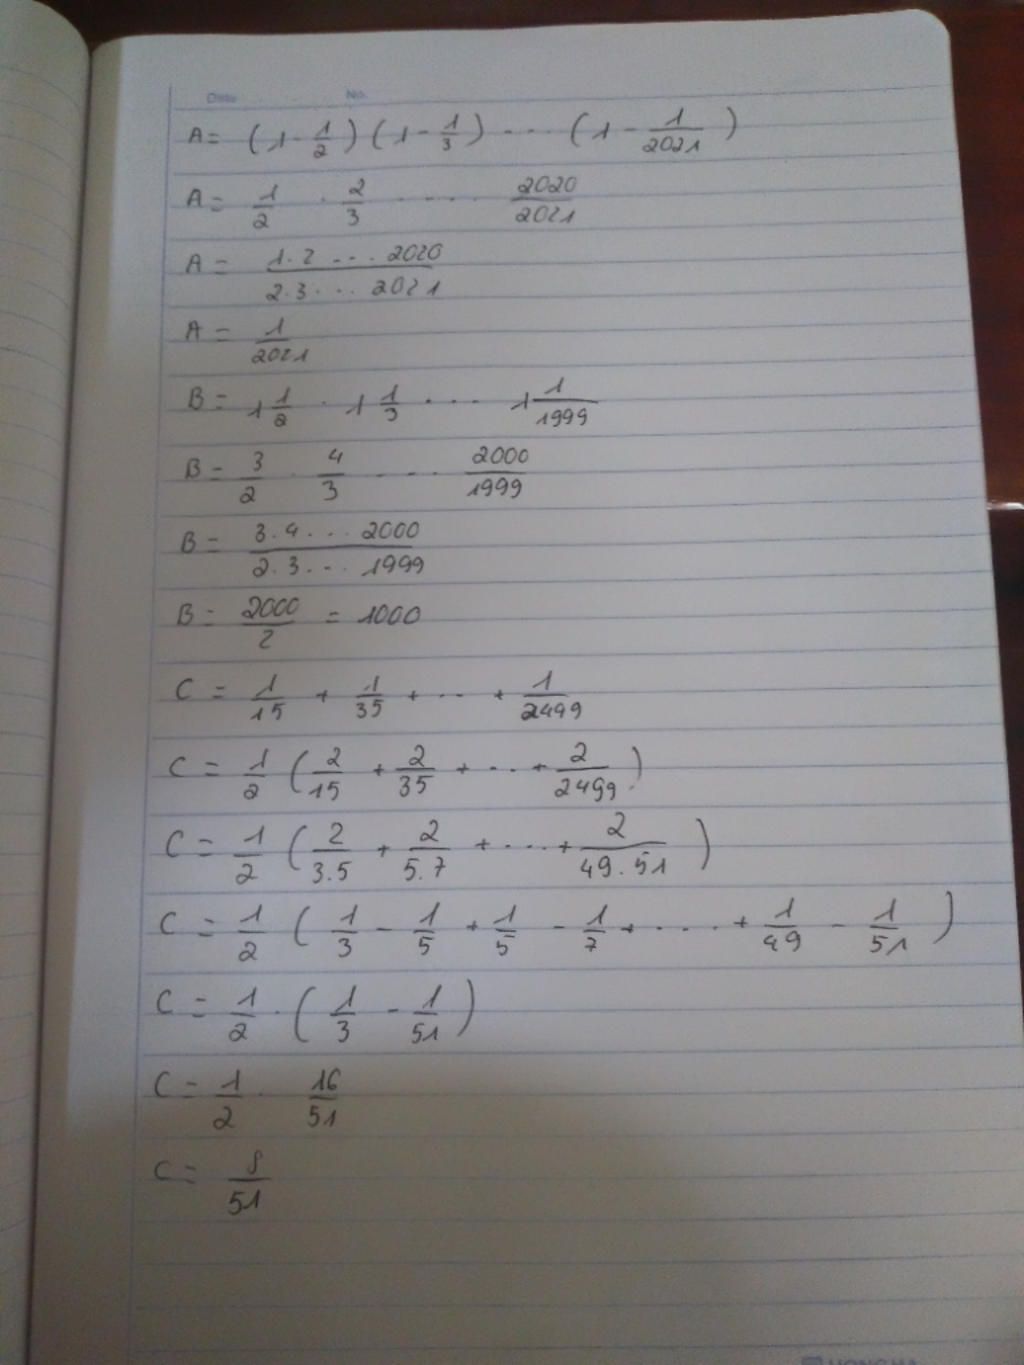 Date No.
A = (1 - 1/2) (1 - 1/3) ... (1 - 1/2021)
A = 1/2 . 2/3 ..... 2020/2021
A = 1.2 ... 2020 / 2.3 ... 2021
A = 1/2021
B = 1 1/2 . 1 1/3 .... 1 1/1999
B = 3/2 . 4/3 ... 2000/1999
B = 3.4 ... 2000 / 2.3 ... 1999
B = 2000/2 = 1000
C = 1/15 + 1/35 + ... + 1/2499
C = 1/2 (2/15 + 2/35 + ... + 2/2499)
C = 1/2 (2/3.5 + 2/5.7 + .... + 2/49.51)
C = 1/2 (1/3 - 1/5 + 1/5 - 1/7 + .... + 1/49 - 1/51)
C = 1/2 . (1/3 - 1/51)
C = 1/2 . 16/51
C = 8/51